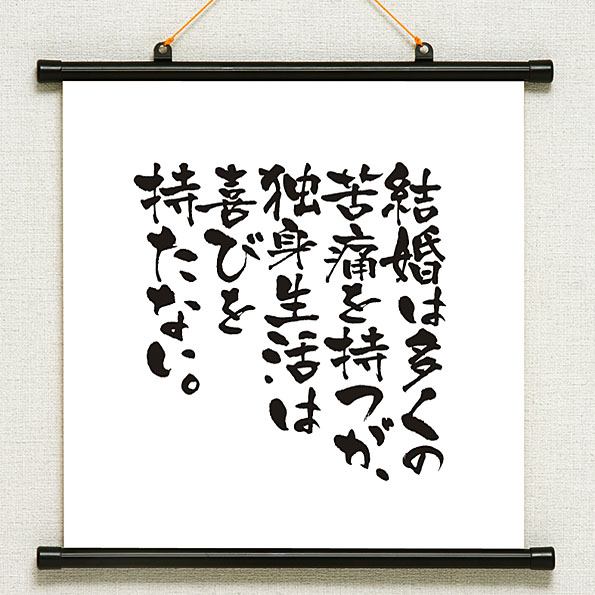 結婚は多くの
苦痛を持つが、
独身生活は
喜びを
持たない。